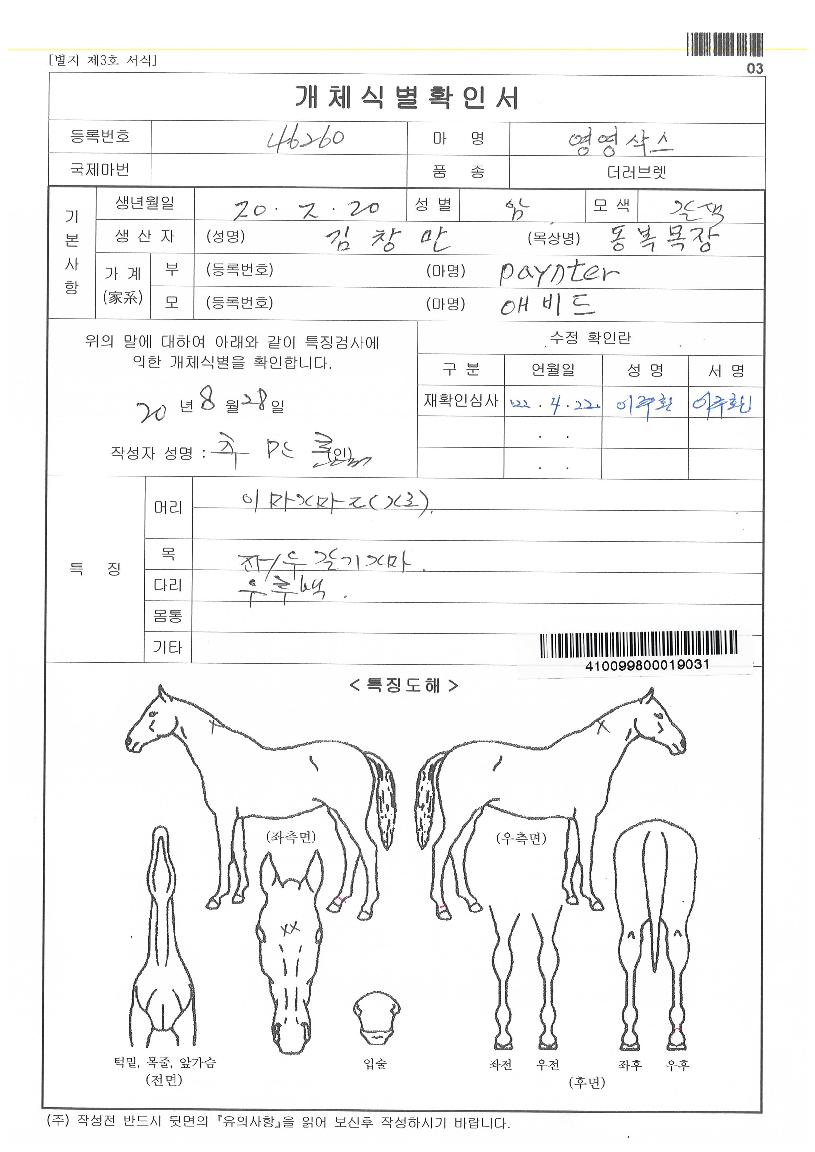 [별지 제3호 서식]
03
개체식별확인서
등록번호 46260 마 명 영영삭스
국제마번 품 종 더러브렛
기본사항
생년월일 20. 2. 20 성 별 암 모 색 갈색
생 산 자 (성명) 김창만 (목장명) 동복목장
가 계 (家系) 부 (등록번호) (마명) paynter
모 (등록번호) (마명) 애비드
위의 말에 대하여 아래와 같이 특징검사에
의한 개체식별을 확인합니다.
20 년 8 월 28 일
작성자 성명 : (인)
수정 확인란
구 분 언월일 성 명 서 명
재확인심사 '22. 4. 22.
. .
. .
특 징
머리 이마가마2(가로).
목 좌/우 갈기가마.
다리 우후백.
몸통
기타
410099800019031
< 특징도해 >
(좌측면) (우측면)
턱밑, 목줄, 앞가슴
(전면)
입술
좌전 우전 좌후 우후
(후면)
(주) 작성전 반드시 뒷면의 『유의사항』을 읽어 보신후 작성하시기 바랍니다.